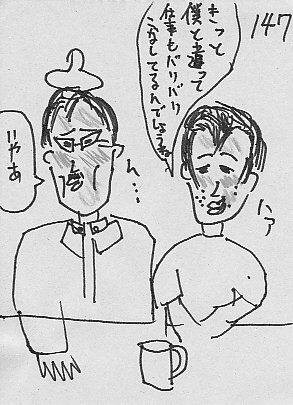 147
きっと
僕と違って
仕事もバリバリ
こなしてるんでしょうね
いやあ
ハァ